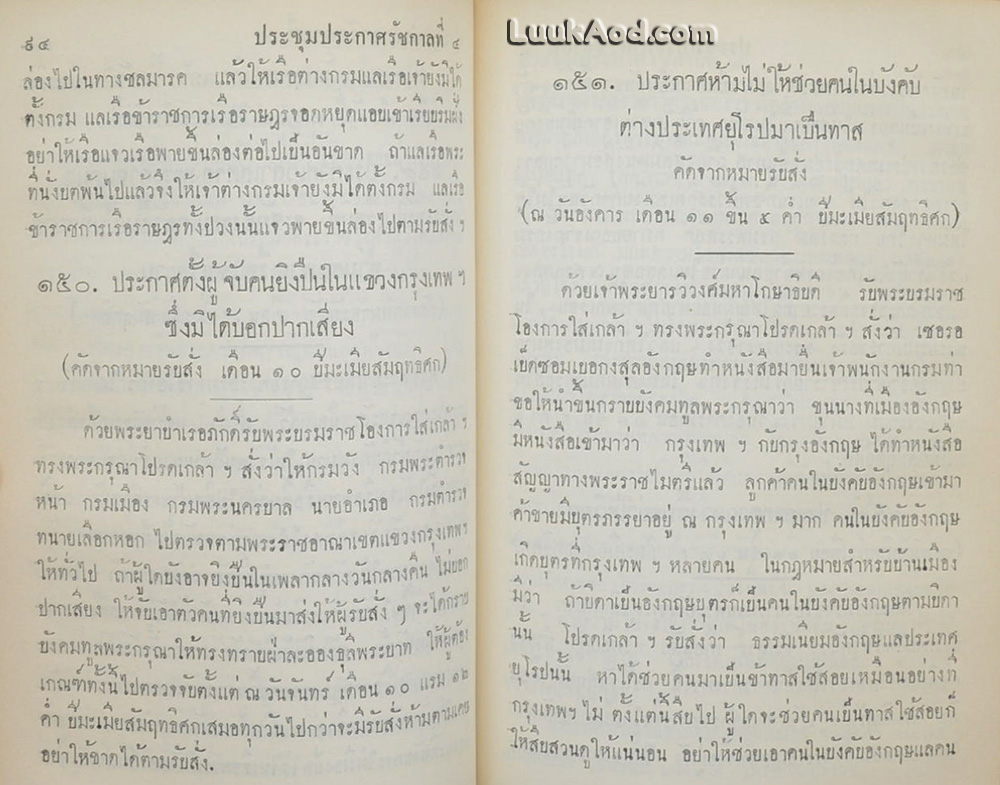 LuukAod.com
๙๔ ประชุมประกาศรัชกาลที่ ๔
ล่องไปในทางชลมารค แล้วให้เรือต่างกรมแลเรือเจ้ายังมิได้
ตั้งกรม แลเรือข้าราชการเรือราษฎรจอดหยุดแอบเข้าเรียบริมฝั่ง
อย่าให้เรือแจวเรือพายขึ้นล่องต่อไปเป็นอันขาด ถ้าแลเรือพระ
ที่นั่งยตพ้นไปแล้วจึงให้เจ้าต่างกรมเจ้ายังมิได้ตั้งกรม แลเรือ
ข้าราชการเรือราษฎรทั้งปวงนั้นแจวพายขึ้นล่องไปตามรับสั่ง ฯ
๑๕๐. ประกาศตั้งผู้จับคนยิงปืนในแขวงกรุงเทพ ฯ
ซึ่งมิได้บอกปากเสียง
(คัดจากหมายรับสั่ง เดือน ๑๐ ปีมะเมียสัมฤทธิศก)
ด้วยพระยาบำเรอภักดิ์รับพระบรมราชโองการใส่เกล้า ฯ
ทรงพระกรุณาโปรดเกล้า ฯ สั่งว่าให้กรมวัง กรมพระตำรวจ
หน้า กรมเมือง กรมพระนครบาล นายอำเภอ กรมตำรวจ
ทนายเลือกหอก ไปตรวจตามพระราชอาณาเขตแขวงกรุงเทพฯ
ให้ทั่วไป ถ้าผู้ใดยังอาจยิงปืนในเพลากลางวันกลางคืน ไม่บอก
ปากเสียง ให้จับเอาตัวคนที่ยิงปืนมาส่งให้ผู้รับสั่ง ๆ จะได้กราบ
บังคมทูลพระกรุณาให้ทรงทราบฝ่าละอองธุลีพระบาท ให้ผู้ต้อง
เกณฑ์ทั้งนี้ไปตรวจจับตั้งแต่ ณ วันจันทร์ เดือน ๑๐ แรม ๑๒
ค่ำ ปีมะเมียสัมฤทธิศกเสมอทุกวันไปกว่าจะมีรับสั่งห้ามตามเคย
อย่าให้ขาดได้ตามรับสั่ง.
๑๕๑. ประกาศห้ามไม่ให้ช่วยคนในบังคับ
ต่างประเทศยุโรปมาเป็นทาส
คัดจากหมายรับสั่ง
(ณ วันอังคาร เดือน ๑๑ ขึ้น ๕ ค่ำ ปีมะเมียสัมฤทธิศก)
ด้วยเจ้าพระยารวิวงศ์มหาโกษาธิบดี รับพระบรมราช
โองการใส่เกล้า ฯ ทรงพระกรุณาโปรดเกล้า ฯ สั่งว่า เซอรอ
เบ็ดซอมเบอกงสุลอังกฤษทำหนังสือมายื่นเจ้าพนักงานกรมท่า
ขอให้นำขึ้นกราบบังคมทูลพระกรุณาว่า ขุนนางที่เมืองอังกฤษ
มีหนังสือเข้ามาว่า กรุงเทพ ฯ กับกรุงอังกฤษ ได้ทำหนังสือ
สัญญาทางพระราชไมตรีแล้ว ลูกค้าคนในบังคับอังกฤษเข้ามา
ค้าขายมีบุตรภรรยาอยู่ ณ กรุงเทพ ฯ มาก คนในบังคับอังกฤษ
เกิดบุตรที่กรุงเทพ ฯ หลายคน ในกฎหมายสำหรับบ้านเมือง
มีว่า ถ้าบิดาเป็นอังกฤษบุตรก็เป็นคนในบังคับอังกฤษตามบิดา
นั้น โปรดเกล้า ฯ รับสั่งว่า ธรรมเนียมอังกฤษแลประเทศ
ยุโรปนั้น หาได้ช่วยคนมาเป็นข้าทาสใช้สอยเหมือนอย่างที่
กรุงเทพฯ ไม่ ตั้งแต่นี้สืบไป ผู้ใดจะช่วยคนเป็นทาสใช้สอยก็
ให้สืบสวนดูให้แน่นอน อย่าให้ช่วยเอาคนในบังคับอังกฤษแลคน